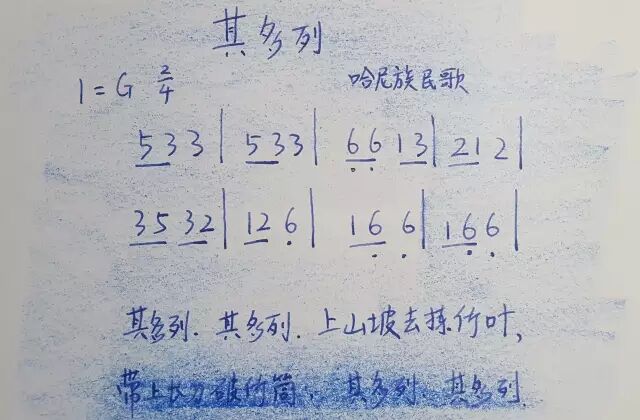 其多列
1=G 2/4 哈尼族民歌
533|533|6613|212|
3532|126|166|166|
其多列.其多列.上山坡去拣竹叶,
带上长刀破竹筒.其多列.其多列